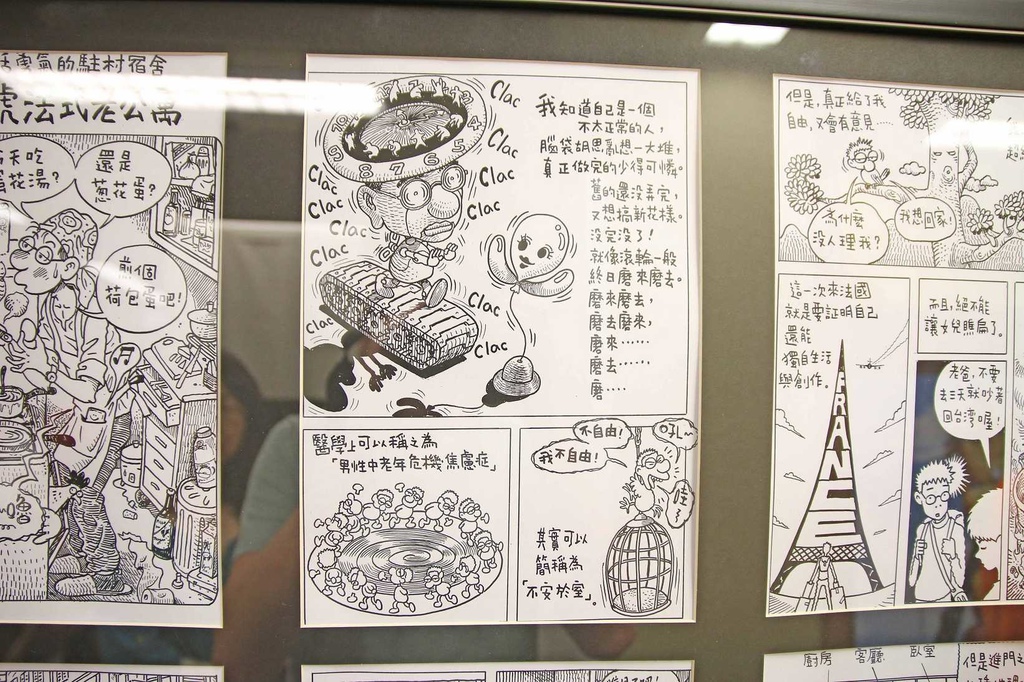 氣的駐村宿舍
法式老公寓
天吃
花湯?
還是
蔥花蛋?
煎個
荷包蛋吧!
嚕
Clac
Clac
Clac
Clac
Clac
Clac
Clac
Clac
Clac
Clac
Clac
Clac
9
8
7
6
5
我知道自己是一個
不太正常的人,
腦袋胡思亂想一大堆,
真正做完的少得可憐。
舊的還沒弄完,
又想搞新花樣。
沒完沒了!
就像滾輪一般
終日磨來磨去。
磨來磨去,
磨去磨來,
磨來……
磨去……
磨….
醫學上可以稱之為
「男性中老年危機焦慮症」
不自由!
我不自由!
吼~
哇
其實可以
簡稱為
「不安於室」。
但是,真正給了我
自由,又會有意見…
為什麼
沒人理我?
我想回家
這一次來法國
就是要証明自己
還能
獨自生活
與創作。
FRANCE
而且,絕不能
讓女兒瞧扁了。
老爸,不要
去三天就吵著
回台灣喔!
廚房
客廳
臥室
但是進門之